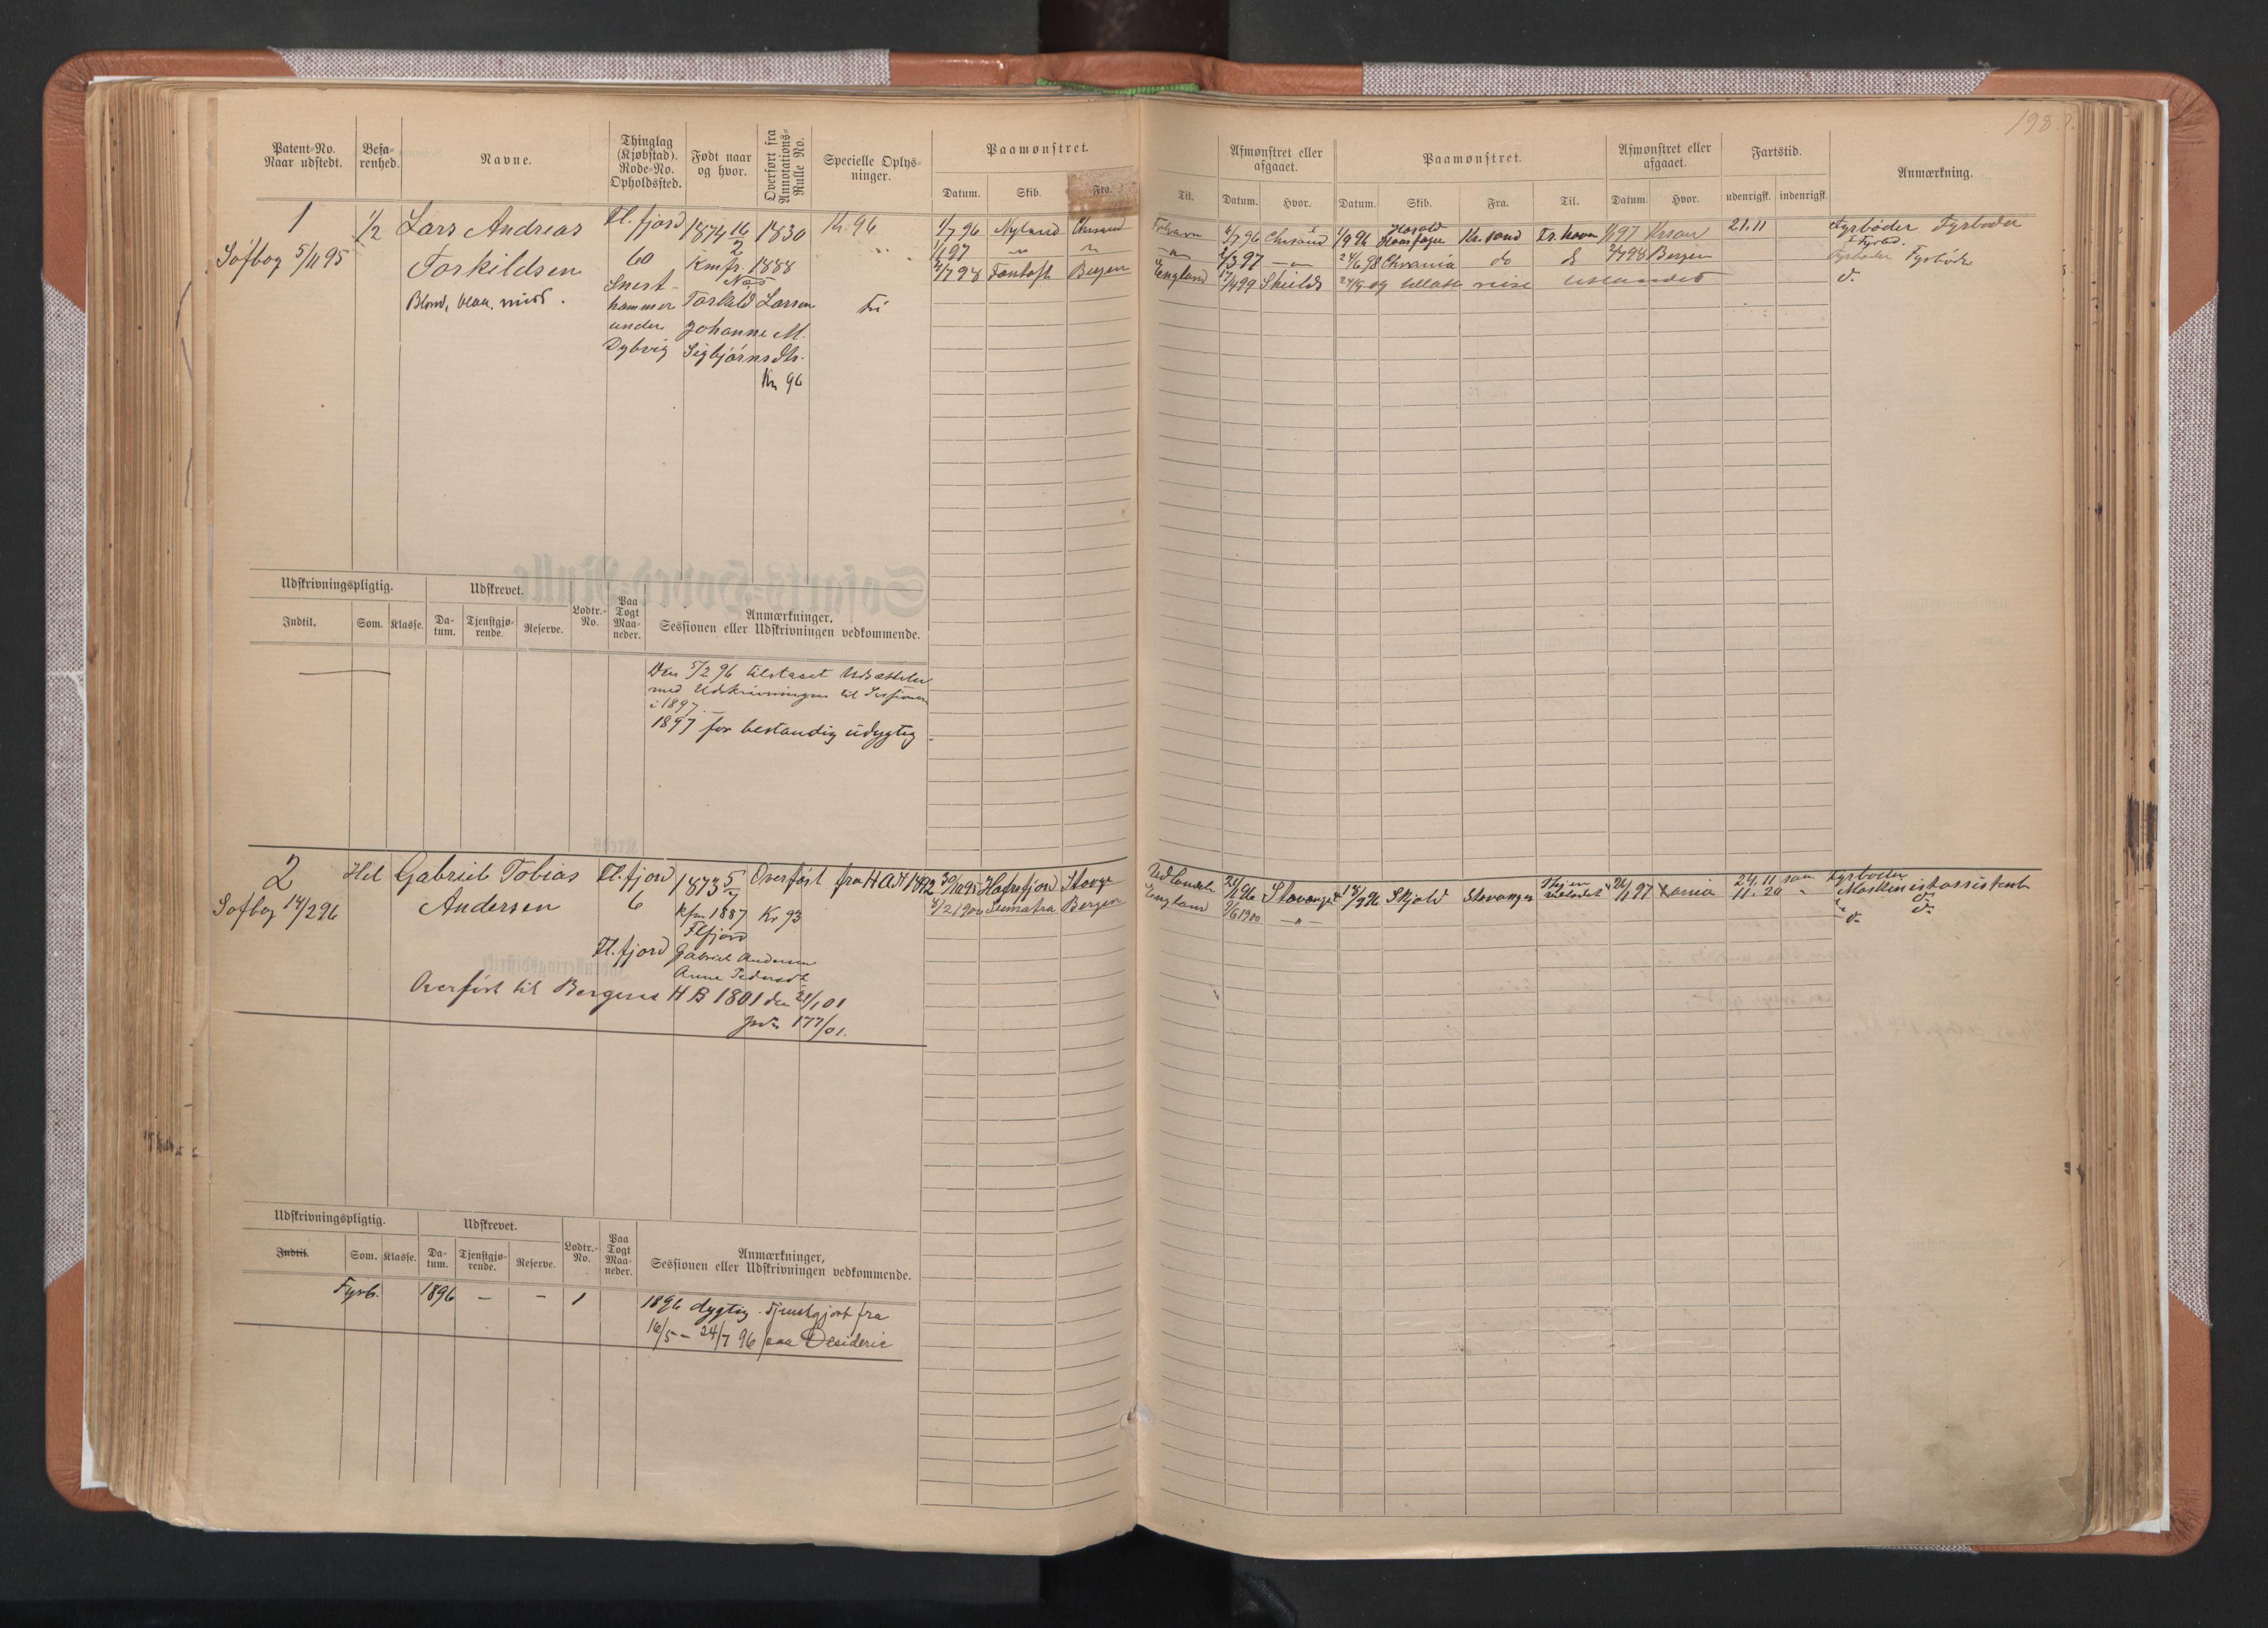 198
Patent-No. Naar udstedt.
Befa-renhed.
Navne.
Thinglag (Kjøbstad). Rode-No. Opholdssted.
Født naar og hvor.
Overført fra Annotations-Rulle No.
Specielle Oplys-ninger.
Paamønstret.
Datum. Skib. Fra. Til.
Afmønstret eller afgaaet.
Datum. Hvor.
Paamønstret.
Datum. Skib. Fra. Til.
Afmønstret eller afgaaet.
Datum. Hvor.
Fartstid.
udenrigsk. indenrigsk.
Anmærkning.
1
Søfbog 5/11 95
1/2
Lars Andreas
Torkildsen
Blond, blaa, midd.
Fl.fjord
60
hammer
under
Dybvig
1874 16/2
Kmfr. 1888
Næs
Torkild Larsen
Johanne M.
Sigbjørnsdtr.
Kr 96
1830
Kr. 96
1/7 96 Nyland Chrsand
1/1 97 " "
2/7 98 Fantoft Bergen England 17/4 99 Shields
Chrsand
1/9 96 Harald Haarfager Kr.sand Fr.havn 1/1 97
2/3 97 24/6 98 Chrania do d 2/7 98 Bergen
reise udlandet
21.11
Fyrbøder Fyrbøder
Fyrbøder Fyrbøder
d.
Udskrivningspligtig.
Indtil. Som. Klasse.
Udskrevet.
Da-tum. Tjenstgjø-rende. Reserve.
Lodtr.-No.
Paa Togt Maa-neder.
Anmærkninger,
Sessionen eller Udskrivningen vedkommende.
Den 5/2 96 tilstaaet Udsættelse
med Udskrivningen til Sessionen
i 1897.
1897 for bestandig udygtig
2
Søfbog 14/2 96
Hel
Gabriel Tobias
Andersen
Fl.fjord
6
Fl.fjord
1873 5/7
Kfm 1887 Kr 93
Flfjord
Gabriel Andersen
Anne Pedersdt
Overført fra H A N 1892
Overført til Bergens H B 1801 den 21/1 01
177/01.
Hafrsfjord Stavgr Udlandet Stavanger Skjold Stavanger
4/2 1900 Sumatra Bergen England 9/6 1900 — " —
26/1 97 Xania
24.11
11.20 "
Fyrbøder
Maskinistassistent
d.
Udskrivningspligtig.
Indtil. Som. Klasse.
Udskrevet.
Da-tum. Tjenstgjø-rende. Reserve.
Lodtr.-No.
Paa Togt Maa-neder.
Anmærkninger,
Sessionen eller Udskrivningen vedkommende.
Fyrb. 1896 – – 1
1896 dygtig. Tjenstgjort fra
16/5 – 24/7 96 paa Desideria